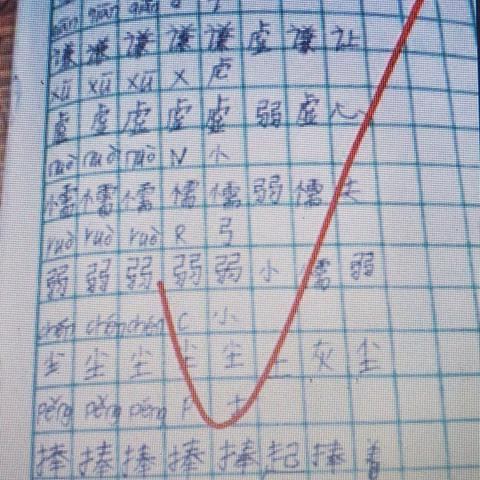 谦 谦 谦 谦 谦 虚 谦 让
xū xū xū X 虍
虚 虚 虚 虚 虚 弱 虚 心
nuò nuò nuò N 小
懦 懦 懦 懦 懦 弱 懦 夫
ruò ruò ruò R 弓
弱 弱 弱 弱 弱 小 懦 弱
chén chén chén C 小
尘 尘 尘 尘 尘 土 灰 尘
pěng pěng pěng P 扌
捧 捧 捧 捧 捧 起 捧 着